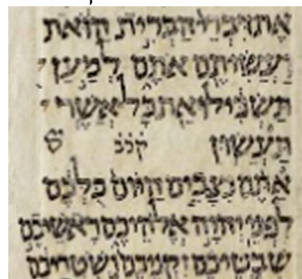 את דברי הברית הזאת
ועשיתם אתם למען
תשכילו את כל אשר
תעשון קככ ס
אתם נצבים היום כלכם
לפני יהוה אלהיכם ראשיכם
שבטיכם זקניכם ושטריכם